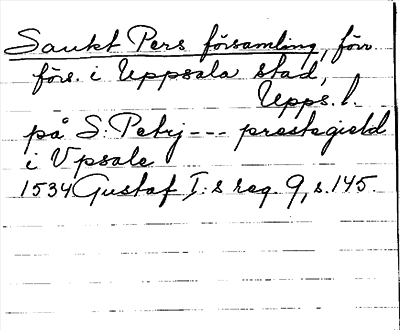 Sankt Pers församling, förv.
förs. i Uppsala stad,
Upps. l.
på S. Petrj --- prestegield
i Vpsale
1534 Gustaf I:s reg. 9, s. 145.